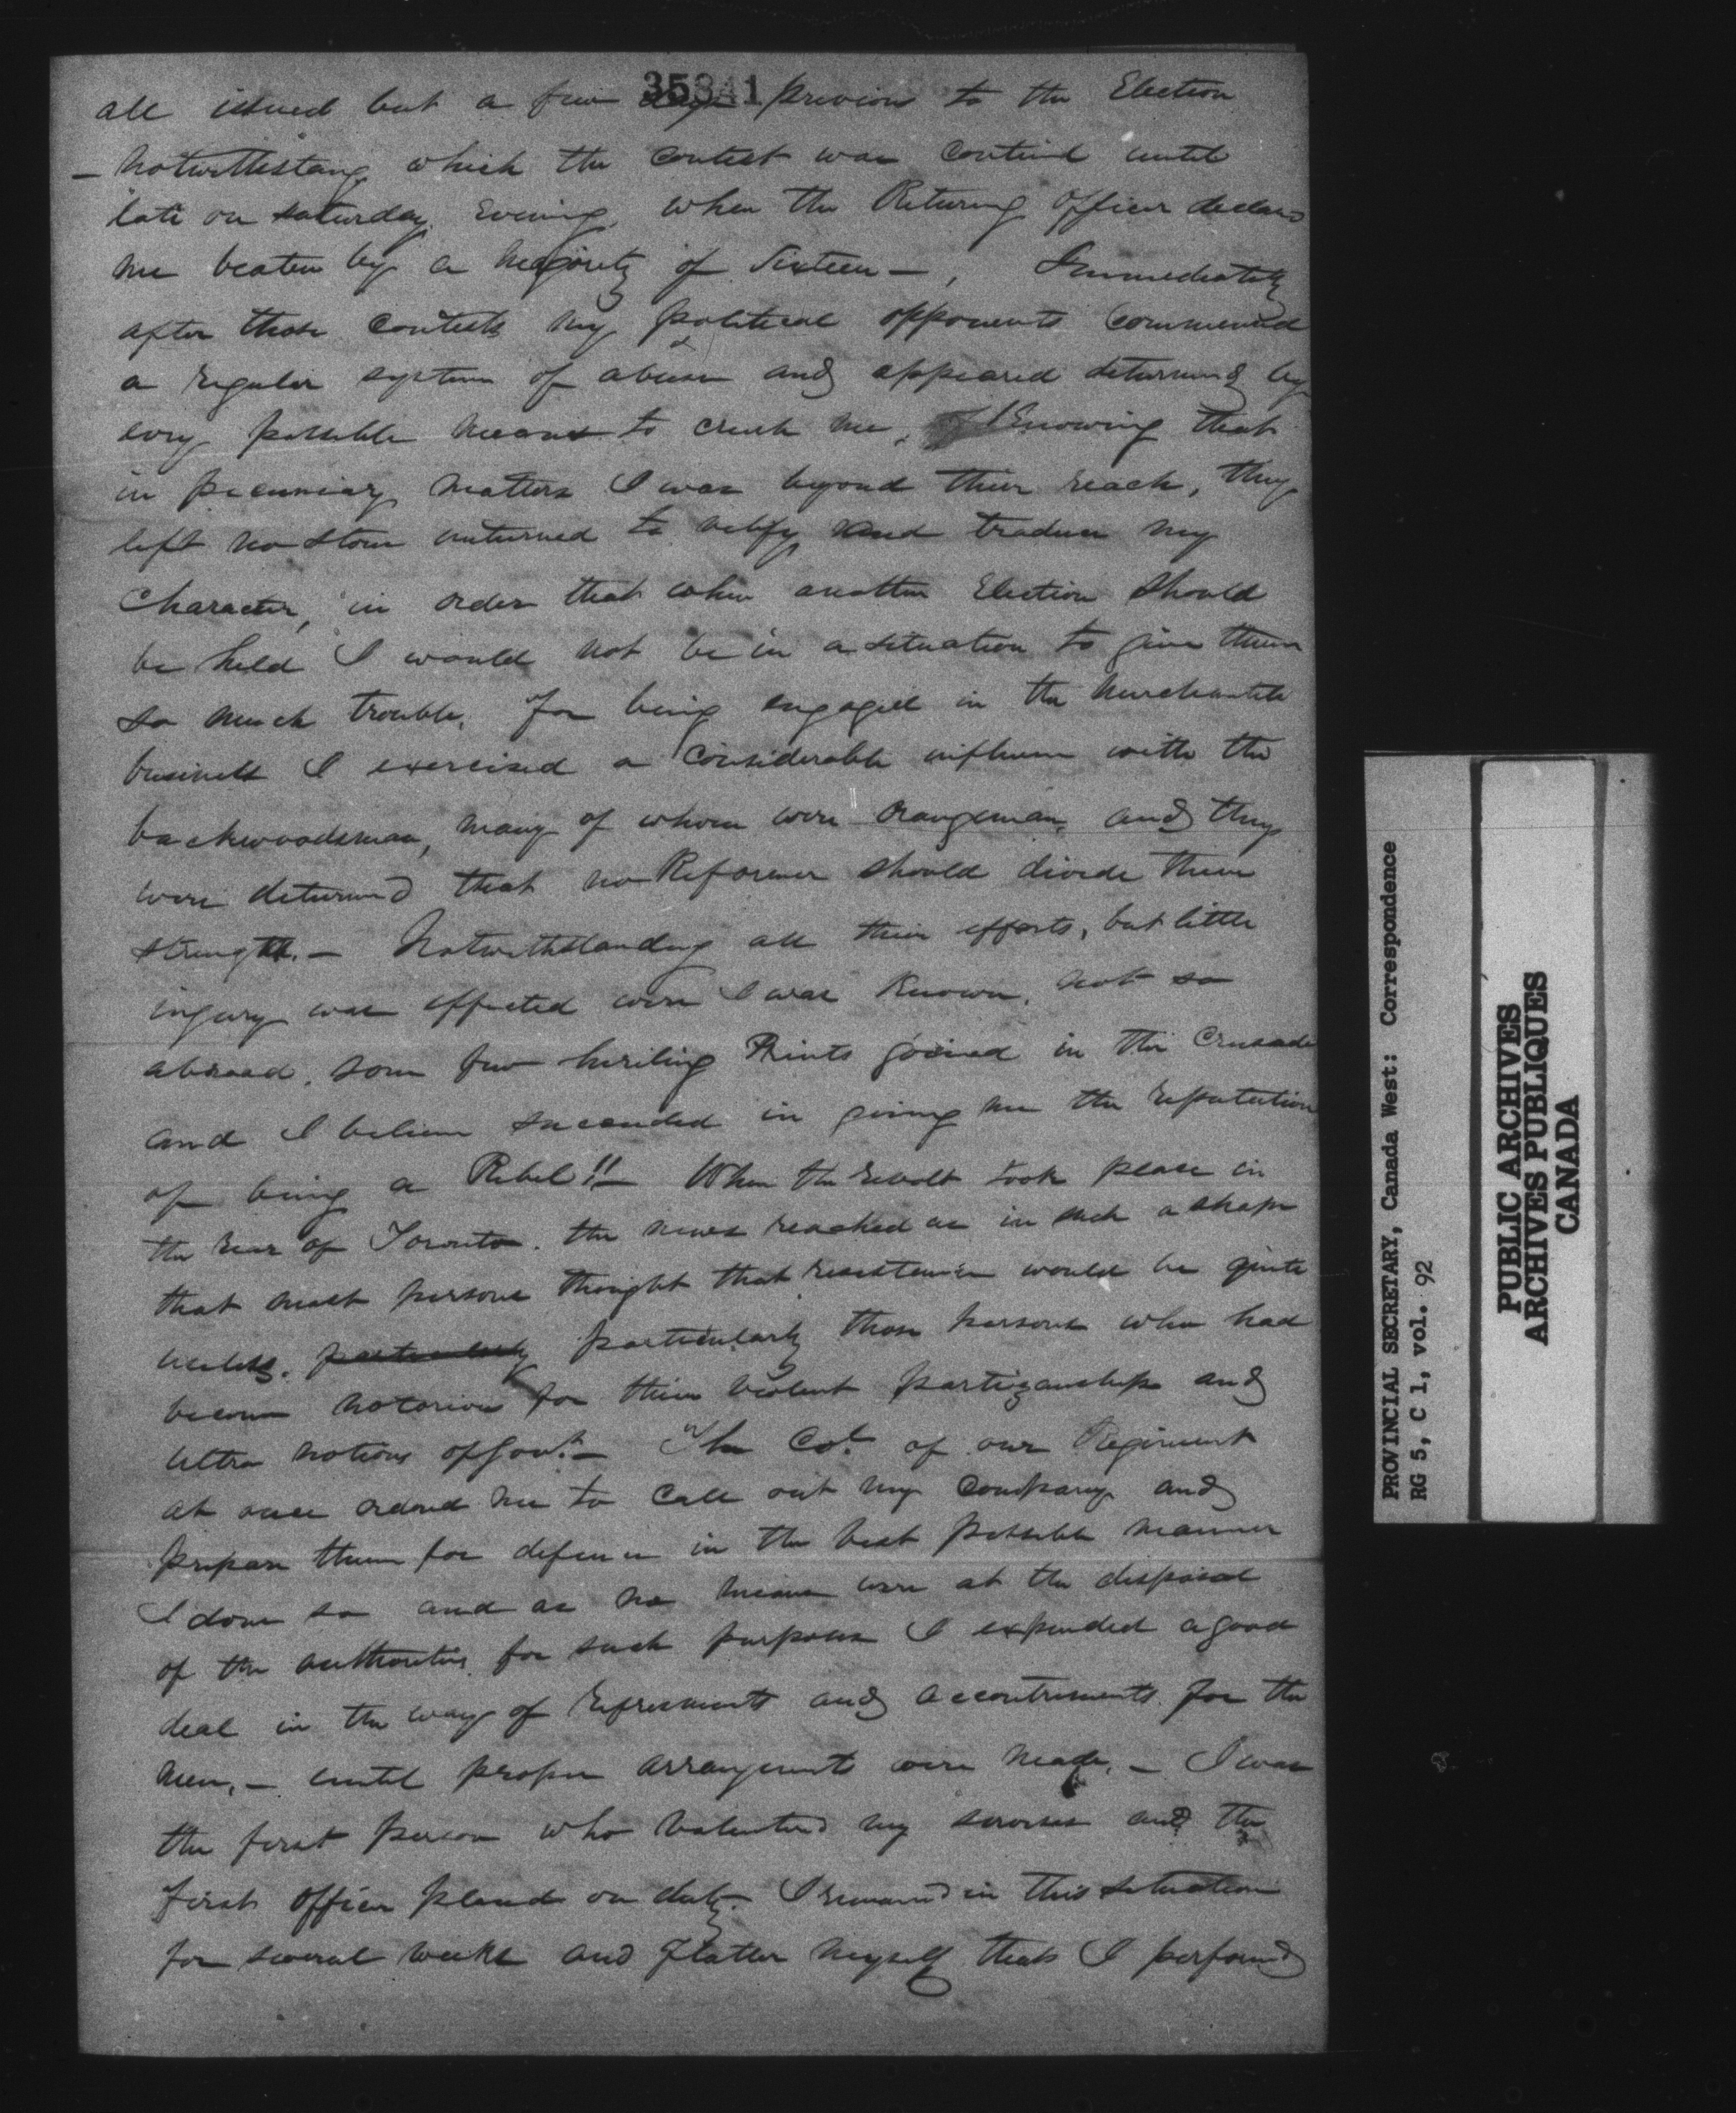 35841
all issued but a few days previous to the Election
- Notwithstang which the contest was contind until
late on saturday Evening, when the Returning officer declard
me beaten by a Majority of Sixteen - , Immediately
after those contests my political opponents commenced
a regular system of abuse and appeared determind by
evry possible means to crush me, Knowing that
in pecuniary matters I was beyond their reach, they
left no stone unturned to vilify and traduce my
Character, in order that when another Election should
be held I would not be in a situation to give them
so much trouble. For being engaged in the Merchantile
business I exercised a considerable influence with the
backwoodsman, many of whom were Orangeman, and they
were determind that no Reformer should divide their
strength. - Notwithstanding all their efforts, but little
injury was effected were I was known, not so
abroad. some few hireling Prints joined in the Crusade
and I believe succeeded in giving me the reputation
of being a Rebel!! - When the revolt took place in
the rear of Toronto. the news reached us in such a shape
that most persons thought that resistence would be quite
useless. particularly particularly those persons who had
become notorious for their violent partizanship and
ultra notions of Govt. - The Col. of our Regiment
at once ordered me to call out my company and
prepare them for defence in the best possible manner
I done so and as no means were at the disposal
of the authorities for such purposes I expended a good
deal in the way of refresments and accoutrements for the
men, - until proper arrangements were made, - I was
the first person who volenterd my services and the
first officer placed on duty. I remaind in this situation
for several weeks and flatter myself that I performd
PROVINCIAL SECRETARY, Canada West: Correspondence
RG 5, C 1, vol. 92
PUBLIC ARCHIVES
ARCHIVES PUBLIQUES
CANADA